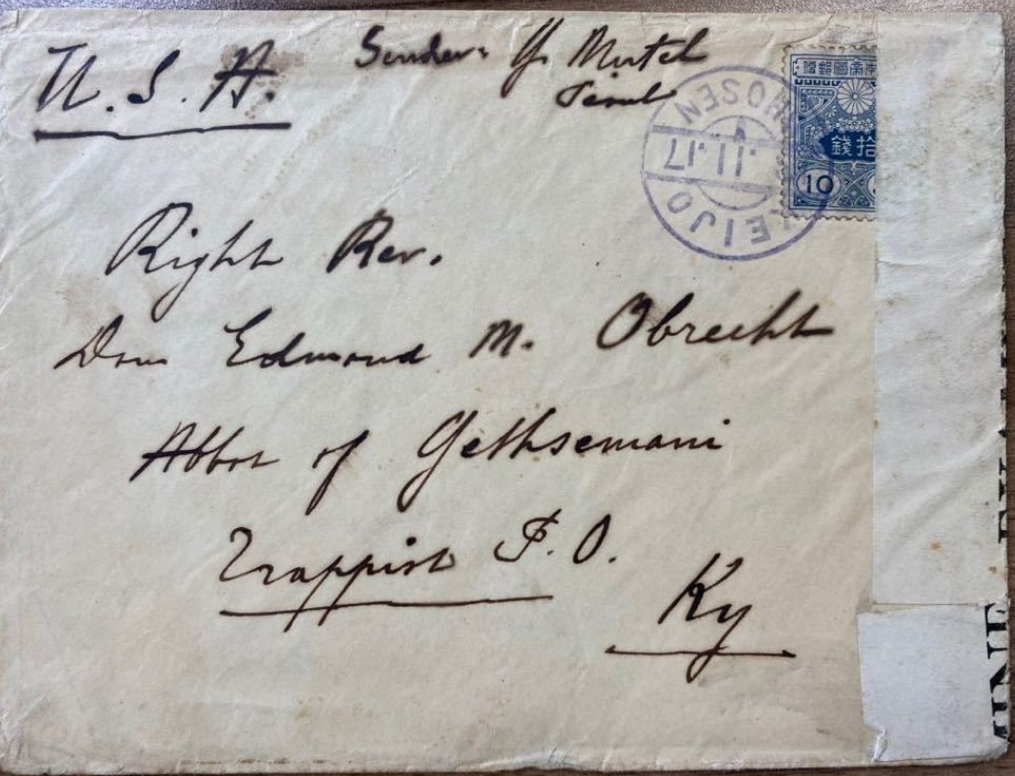 U. S. A.
Sender: G. Mutel
Seoul
HOSEN
.11.17
KEIJO
便郵國帝
錢拾
10
Right Rev.
Dom Edmond M. Obrecht
Abbot of Gethsemani
Trappist P.O.
Ky